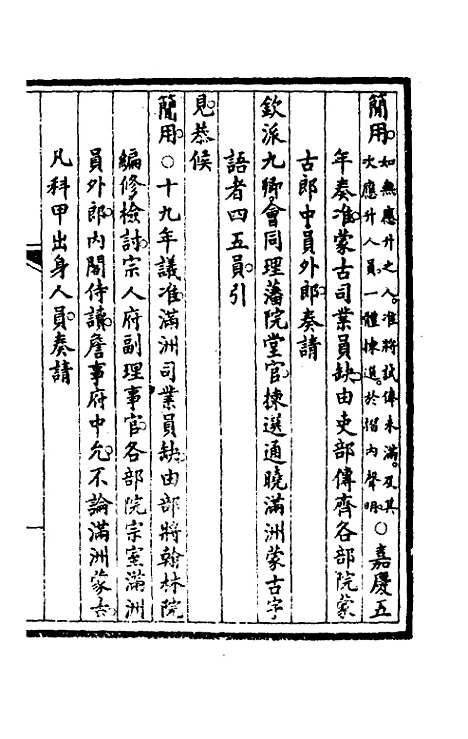 簡用。如無應升之人。准將試俸未滿。及其次應升人員一體揀選。於摺內聲明○嘉慶五
年奏准蒙古司業員缺由吏部傳齊各部院蒙
古郎中員外郎奏請
欽派九卿會同理藩院堂官揀選通曉滿洲蒙古字
語者四五員引
見恭候
簡用。○十九年議准滿洲司業員缺由部將翰林院
編修檢討。宗人府副理事官。各部院宗室滿洲
員外郎。內閣侍讀。詹事府中允。不論滿洲蒙古。
凡科甲出身人員。奏請